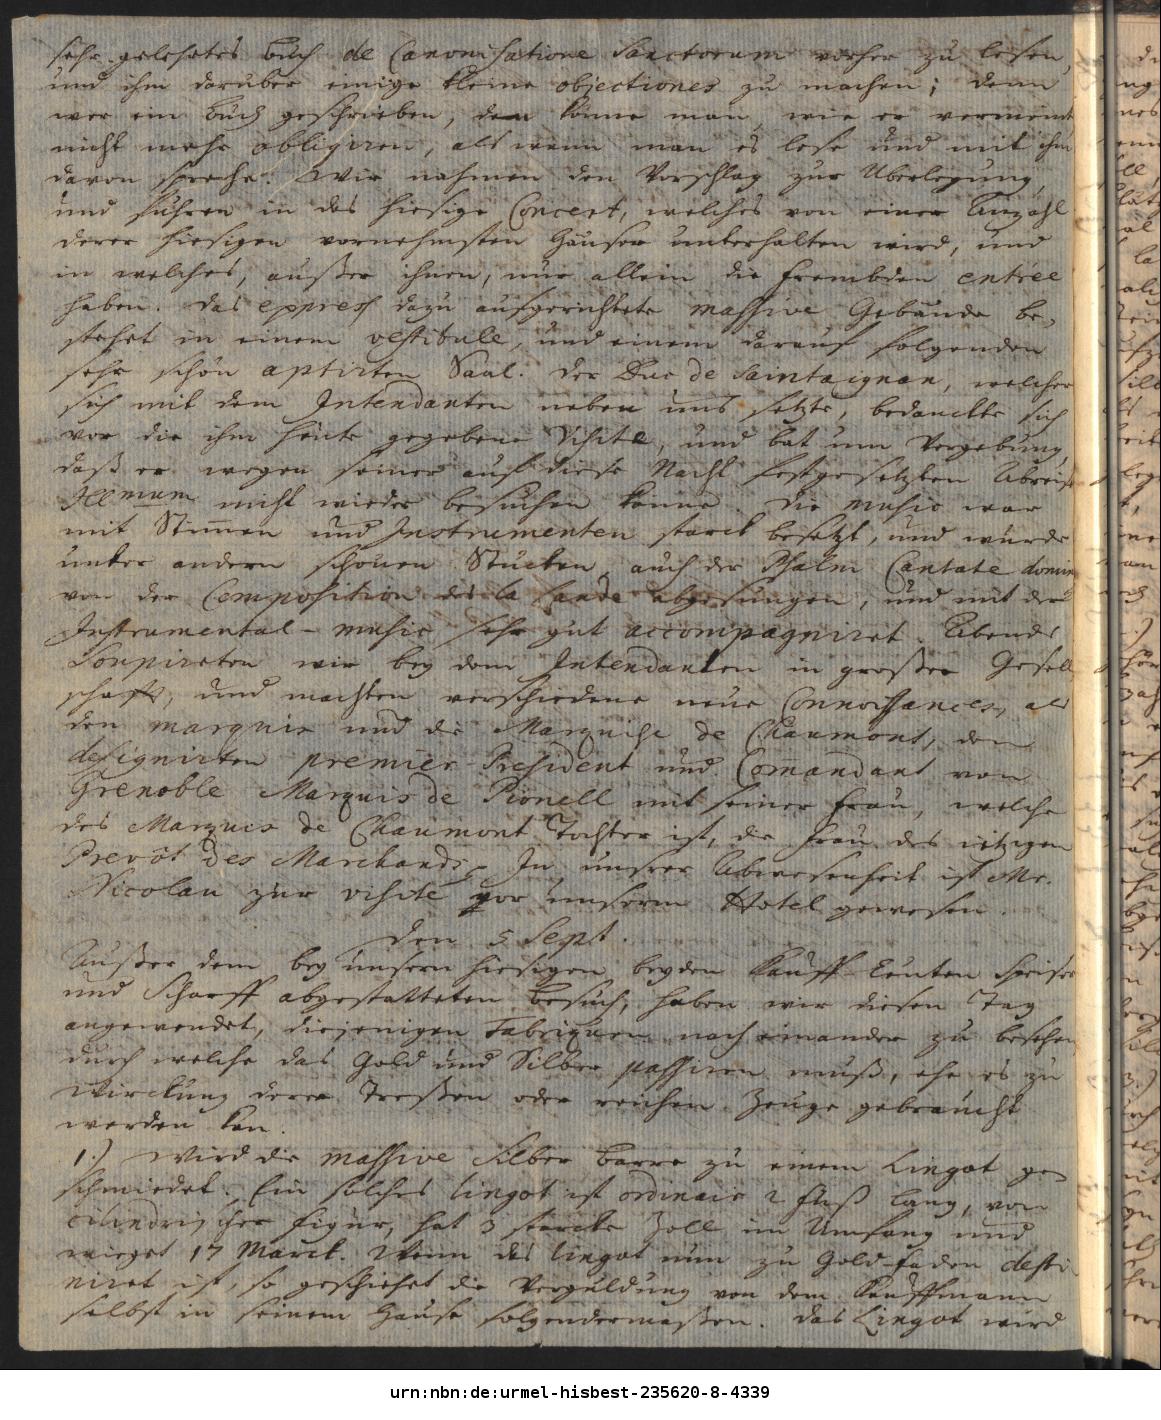 sehr gelehrtes Buch de Canonisatione Sanctorum vorher zu lesen,
und ihm darüber einige kleine objectiones zu machen; denn
wer ein Buch geschrieben, dem könne man, wie er vermeint
nicht mehr obligiren, als wenn man es lese und mit ihm
davon spreche. Wir nahmen den Vorschlag zur Uberlegung,
und fuhren in das hiesige Concert, welches von einer Anzahl
derer hiesigen vornehmsten Häuser unterhalten wird, und
in welches, außer ihnen, nur allein die Frembden entrée
haben. Das express dazu aufgerichtete massive Gebäude be-
stehet in einem vestibule, und einem darauf folgenden
sehr schön aptirten Saal. Der Duc de Saintaignan, welcher
sich mit dem Intendanten neben uns setzte, bedanckte sich
vor die ihm heute gegebene Visite, und bat um Vergebung,
daß er wegen seiner auf diese Nacht festgesetzten Abreise
Illmum nicht wieder besuchen könne. Die music war
mit Stimmen und Instrumenten starck besetzt, und wurde
unter andern schönen Stücken auch der Psalm Cantate domin
von der Composition des la Lande abgesungen, und mit der
Instrumental-music sehr gut accompagniret. Abends
Soupireten wir bey dem Intendanten in großer Gesell-
schafft, und machten verschiedene neue Connoissances, als
den marquis und die Marquise de Chaumont, den
designirten premier-President und Commandant von
Grenoble Marquis de Pionell mit seiner Frau, welche
des Marquis de Chaumont Tochter ist, die Frau des itzigen
Prevôt des Marchands. In unserer Abwesenheit ist Mr.
Nicolau zur visite vor unserm Hotel gewesen.
den 5 Sept.
Außer dem bey unsern hiesigen beyden Kauff-Leuten Speiser
und Scharff abgestatteten Besuch, haben wir diesen Tag
angewendet, diejenigen Fabriquen nach einander zu besehen
durch welche das Gold und Silber passiren muß, ehe es zu
Wirckung derer Treßen oder reichen Zeuge gebraucht
werden kan.
1.) Wird die massive Silber Barre zu einem Lingot ge-
schmiedet. Ein solches lingot ist ordinair 2 Fuß lang, von
cilindrischer Figur, hat 3 starcke Zoll im Umfang und
wieget 17 Marck. Wenn das lingot nun zu Gold-Faden desti-
niret ist, so geschiehet die Verguldung von dem Kauffmann
selbst in seinem Hause folgendermaßen. Das Lingot wird
urn:nbn:de:urmel-hisbest-235620-8-4339